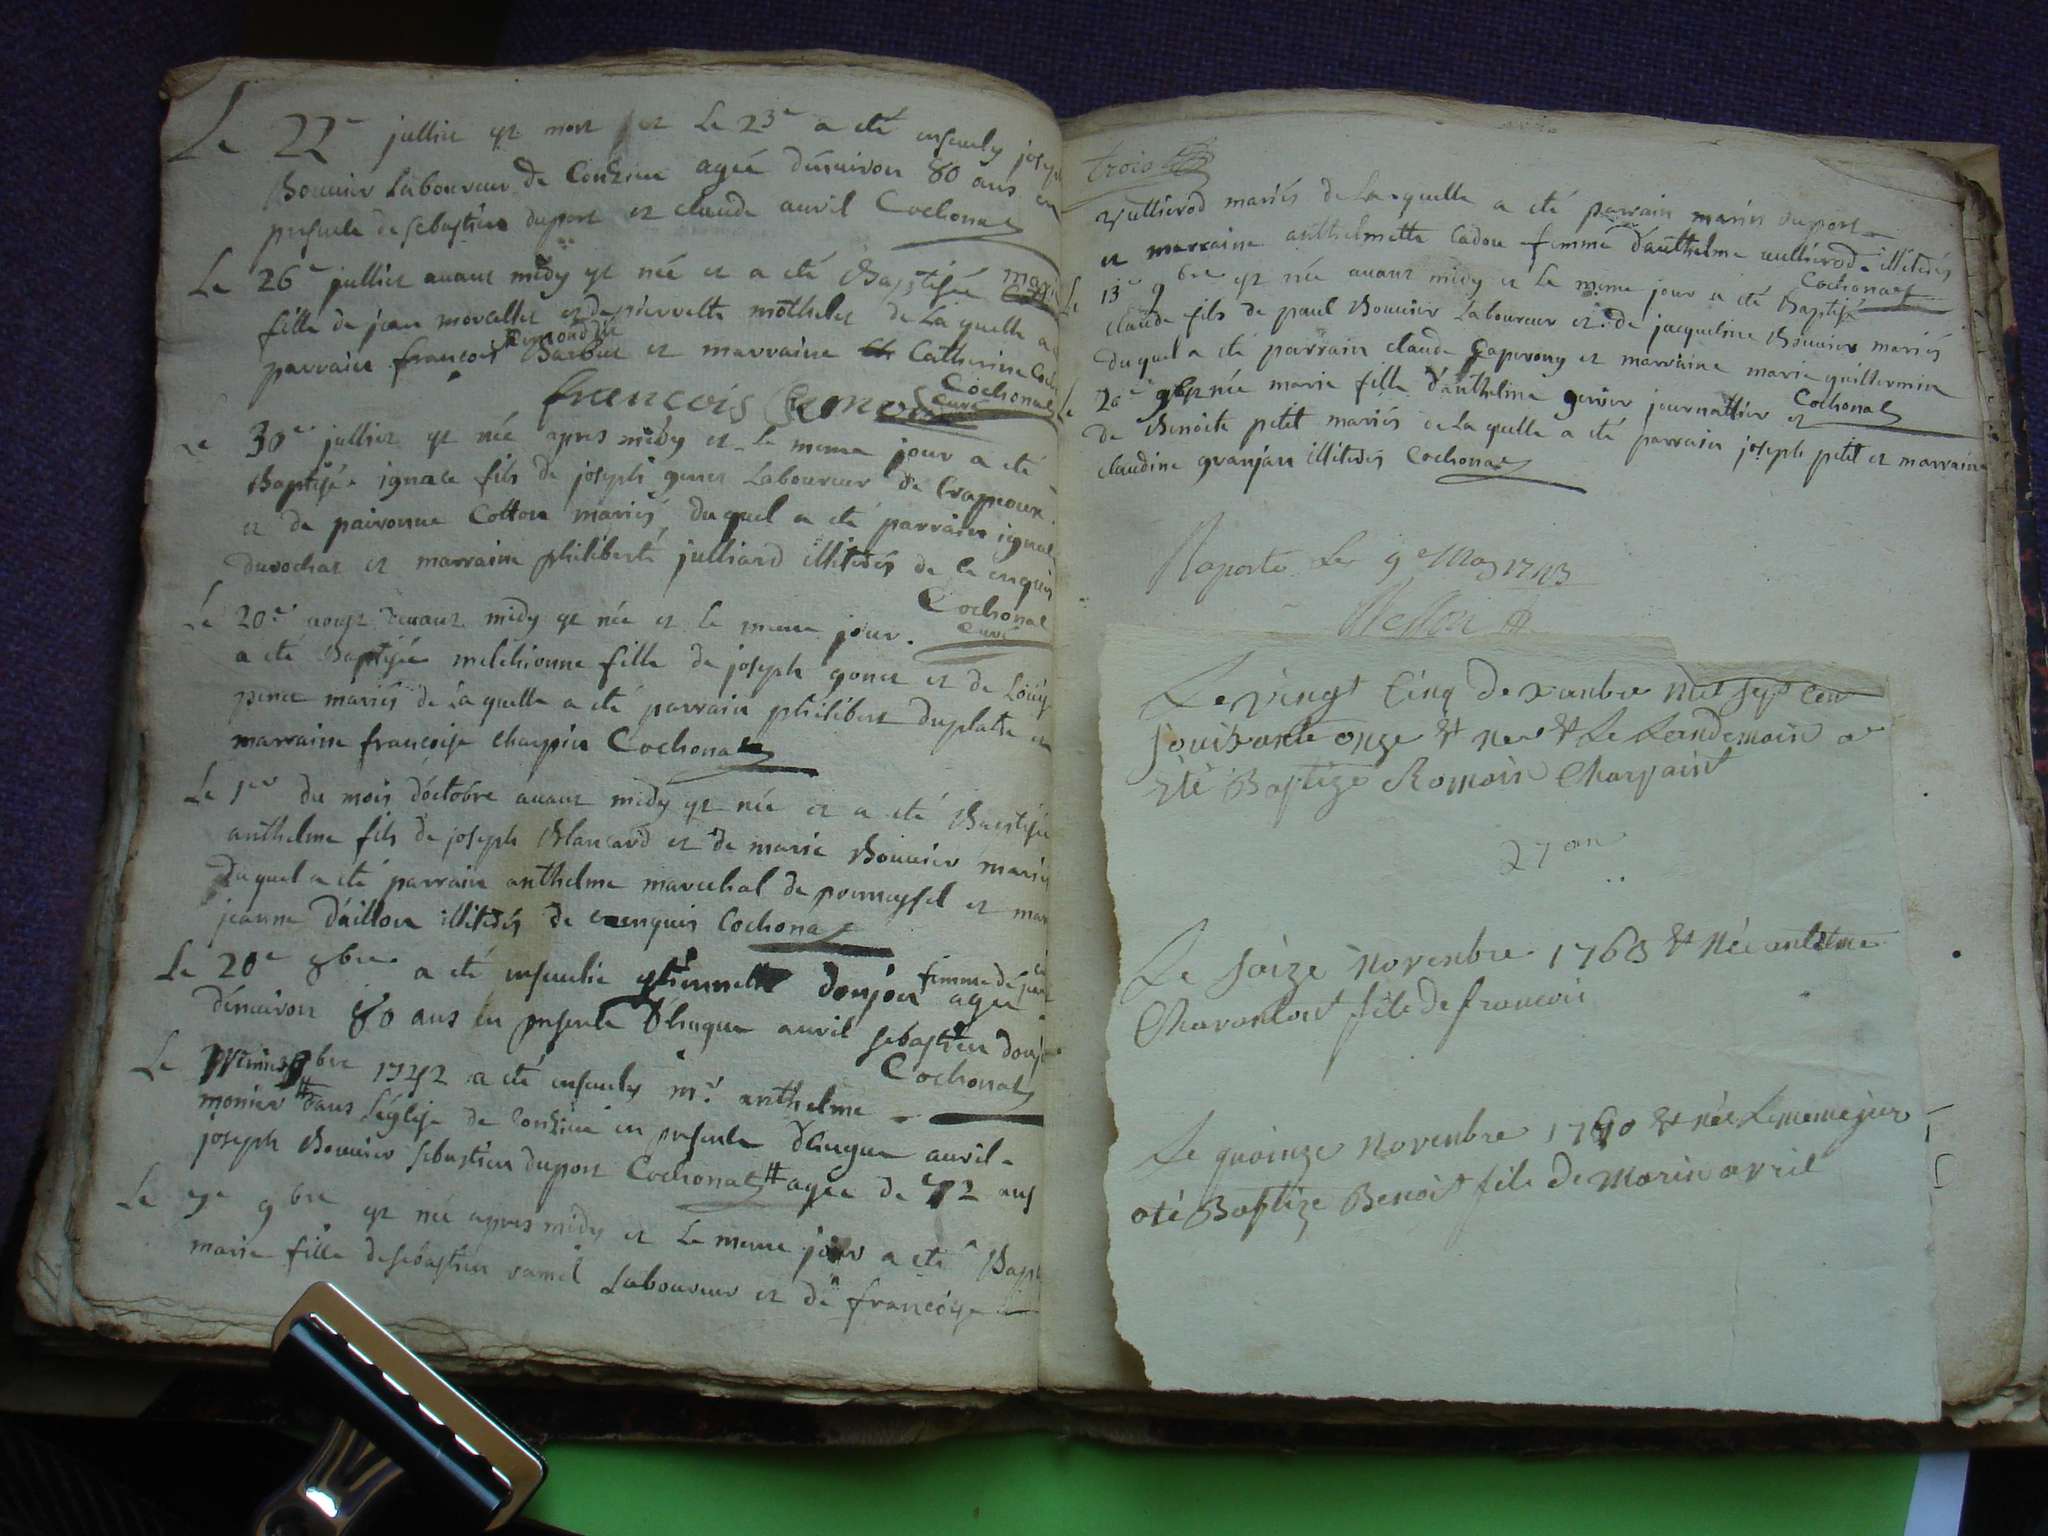 Le 22e juillet est mort et Le 23e a eté enseuely joseph
Bouvier Laboureur de Conzieu ageé d'enuiron 80 ans en
presence de sebastien duport et claude auril Cochonat
Le 26e juillet auant midy est née et a eté Baptisée marie
fille de jean morellet et de pierrette mothelet de La quelle a
parrain françois Remond dit Barbut et marraine Catherine
Cochonat
curé
francois Remond
Le 30e juillet est née apres midy et le meme jour a eté
Baptisée ignace fils de joseph genet Laboureur de Crapeoux
et de paironne Cotton mariés, du quel a eté parrain ignace
durochat et marraine philiberte julliard illiterés de ce enquis
Cochonat
curé
Le 20e aoust deuant midy est née et le meme jour
a eté Baptisée melchionne fille de joseph gonet et de Loüise
penet mariés de La quelle a eté parrain philibert duplatre et
marraine francoise charpin Cochonat
Le 1er du mois d'octobre auant midy est née et a eté Baptisée
anthelme fils de joseph Blancard et de marie Bouuier mariés
Du quel a eté parrain anthelme marechal de poumeyssel et mar
jeanne d'aillou illiterés de ce enquis Cochonat
Le 20e 8bre a eté enseuelie estiennette donjou femme de jean ageé
d'enuiron 80 ans en presence d'hugue auril sebastien donjou
Cochonat
Le premier 9bre 1742 a eté enseuely mr anthelme
monier # dans L'église de Conzieu en presence d'hugue auril
joseph Bouuier sebastien duport Cochonat # ageé de 72 ans
Le 7e 9bre est née apres midy et Le meme jour a eté Bapt
marie fille de sebastien ramel Laboureur et de francoise
trois
vullierod mariés de La quelle a eté parrain marin duport
et marraine anthelmette Cadou femme d'anthelme vullierod illiterés
Cochonat
Le 13e 9bre est née auant midy et Le meme jour a eté Baptisé
claude fils de paul Bouuier Laboureur et de jacqueline Bouuier mariés
du quel a eté parrain claude Caperony et marraine marie guillermin
Cochonat
Le 20e 9bre née marie fille d'anthelme gervier journallier et
de Benoite petit mariés de La quelle a eté parrain joseph petit et marraine
claudine granjan illiterés Cochonat
Raporte Le 9e May 1743
Le vingt Cinq de xambre mil sept cen
soixante onze et nee et Le Lendemain a
Eté Baptize Romain Charpaint
27 an
Le saize novenbre 1763 et née antelme
Charanlost fils de francois
Le quoinze novenbre 1760 et née Le meme jour
oté Baptize Benoit fils de Morin avril